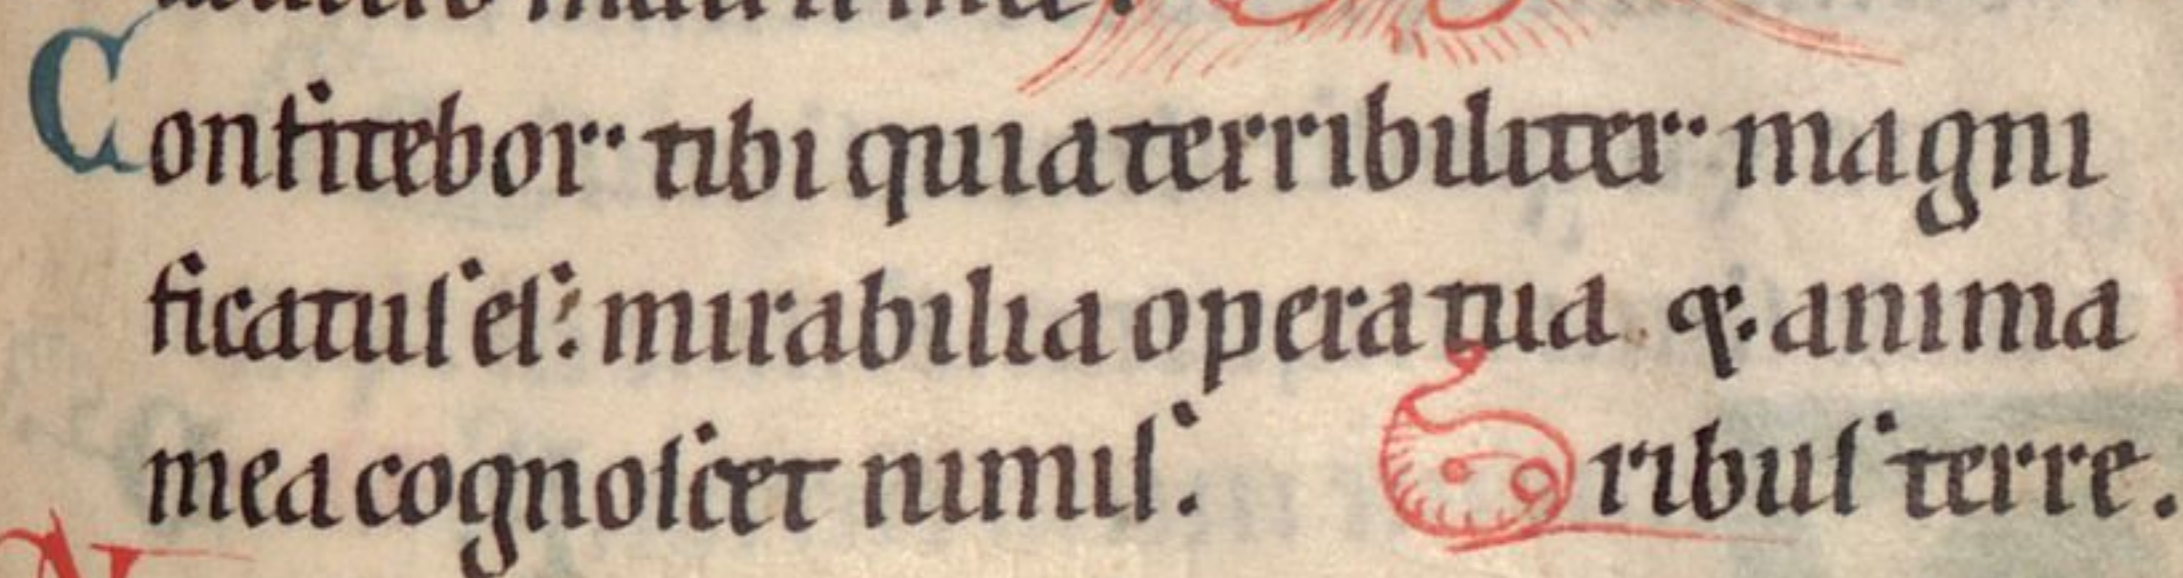 Confitebor tibi quia terribiliter magni
ficatuſ eſ: mirabilia opera tua q. anima
mea cognoſcet nimiſ. 
ribuſ terre.